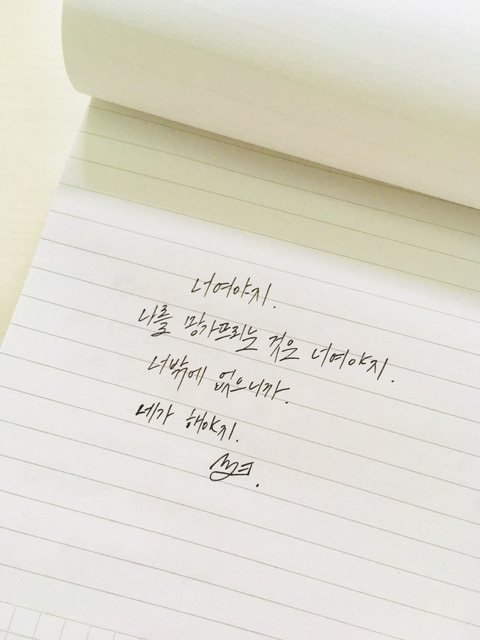 너여야지.
나를 망가뜨리는 것은 너여야지.
너밖에 없으니까.
네가 해야지.